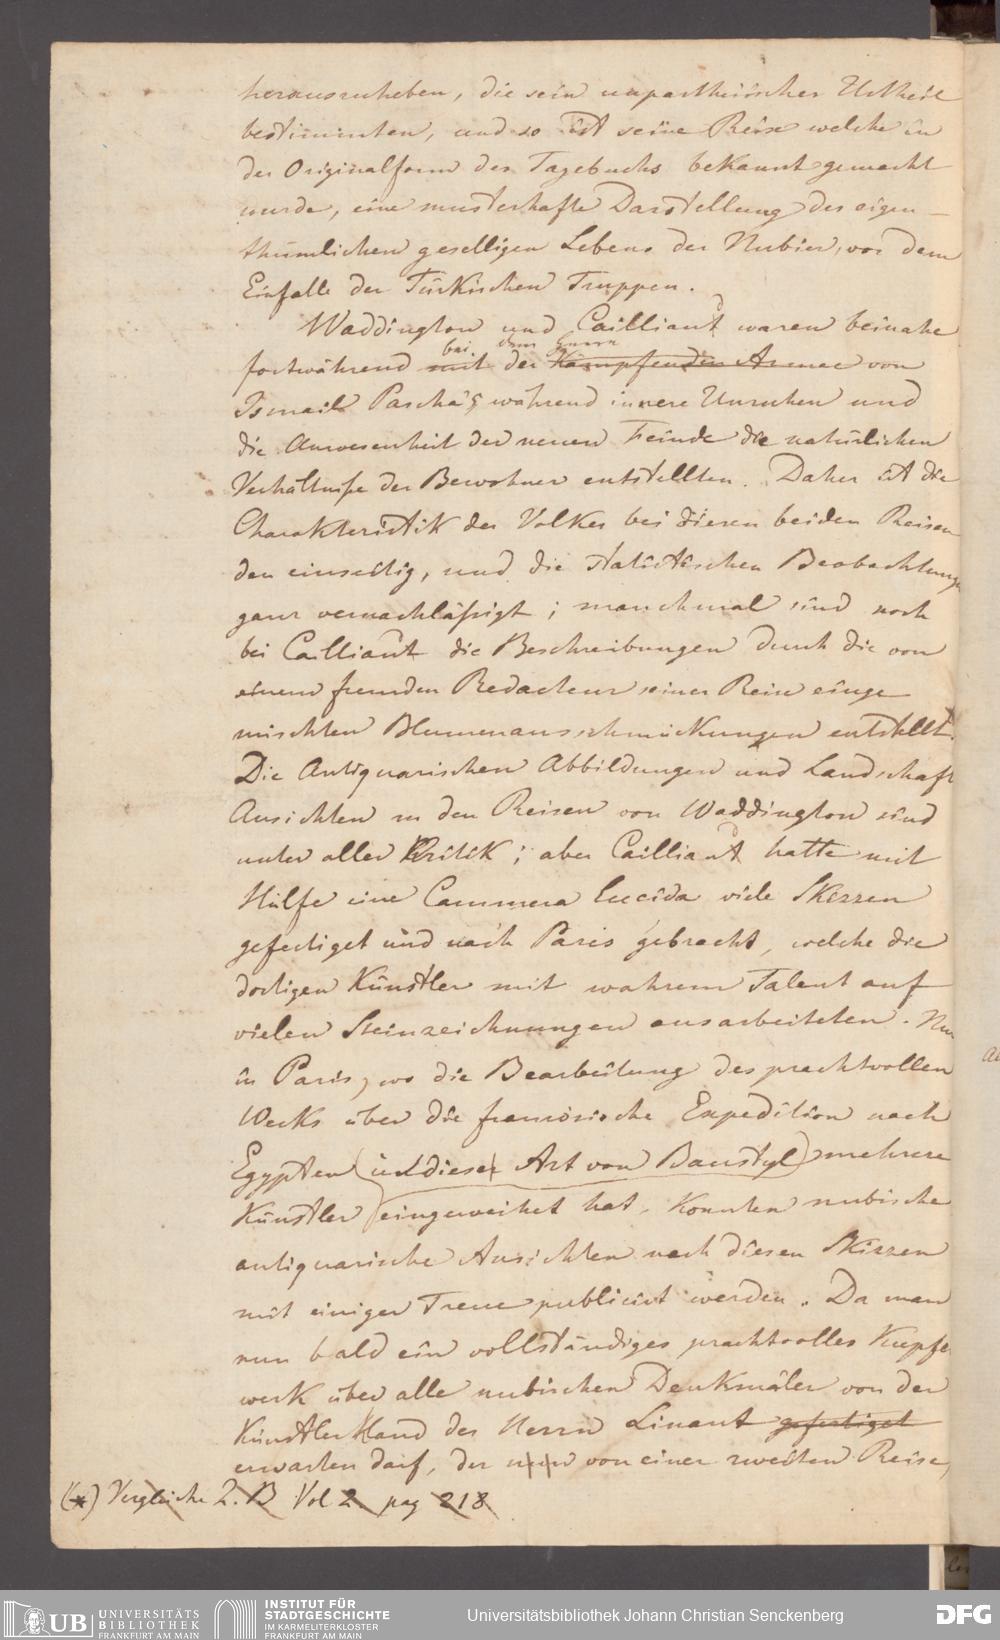 herauszuheben, die sein unpartheiischer Urtheil
bestimmten, und so ist seine Reise welche in
der Originalform des Tagebuchs bekannt gemacht
wurde, eine musterhafte Darstellung des eigen-
thümlichen geselligen Lebens der Nubier, vor dem
Einfalle der Türkischen Truppen.
Waddington und Cailliaut waren beinahe
bei dem Heere
fortwährend mit der Kämpfenden Armee von
Ismail Pascha's während innere Unruhen und
die Anwesenheit der neuen Feinde die natürlichen
Verhältniße der Bewohner entstellten. Daher ist die
Charakteristik des Volkes bei diesen beiden Reisen
den einseitig, und die statistischen Beobachtungen
ganz vernachläßigt; manchmal sind noch
bei Cailliaut die Beschreibungen durch die von
einem fremden Redacteur seiner Reise einge
mischten Blumenausschmückungen entstellt.
Die Antiquarischen Abbildungen und Landschaft
Ansichten zu den Reisen von Waddington sind
unter aller Kritik; aber Cailliaut hatte mit
Hülfe eine Cammera Lucida viele Skizzen
gefertiget und nach Paris gebracht, welche die
dortigen Künstler mit wahrem Talent auf
vielen Steinzeichnungen ausarbeiteten. Nur
in Paris, wo die Bearbeitung des prachtvollen
Werks über die französische Expedition nach
Egypten (in dieser Art von Baustyl) mehrere
Künstler eingeweihet hat, konnten nubische
antiquarische Ansichten nach diesen Skizzen
mit einiger Treue publicirt werden. Da man
nun bald ein vollständiges prachtvolles Kupfe
werk über alle nubischen Denkmäler von der
Künstler Hand des Herrn Linant gefertiget
erwarten darf, der von einer zweiten Reise,
(*) Vergleiche Z. B Vol 2 pag 218
UB UNIVERSITÄTS
BIBLIOTHEK
FRANKFURT AM MAIN
INSTITUT FÜR
STADTGESCHICHTE
IM KARMELITERKLOSTER
FRANKFURT AM MAIN
Universitätsbibliothek Johann Christian Senckenberg
DFG